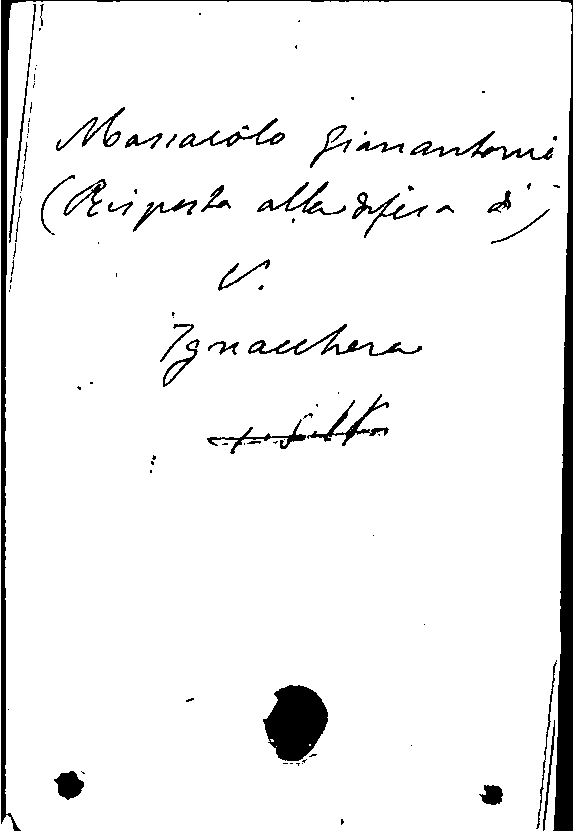 Massarolo Gianantonio
(Risposta alla difesa di)
V.
Ignacchera